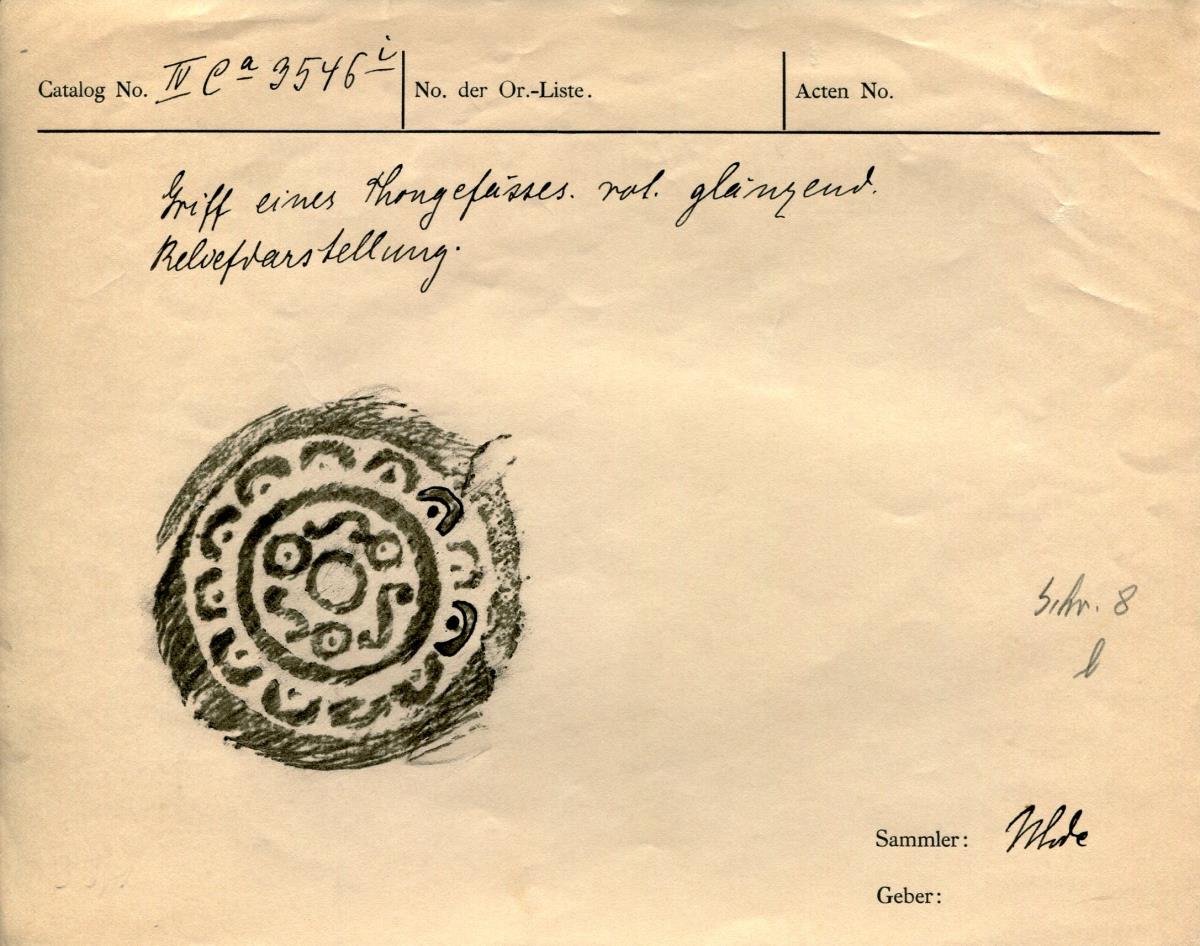 Catalog No. IV Ca 3546 i
No. der Or.-Liste.
Acten No.
Griff eines Thongefässes. rot. glänzend.
Reliefdarstellung.
Schr. 8
Sammler: Uhde
Geber: